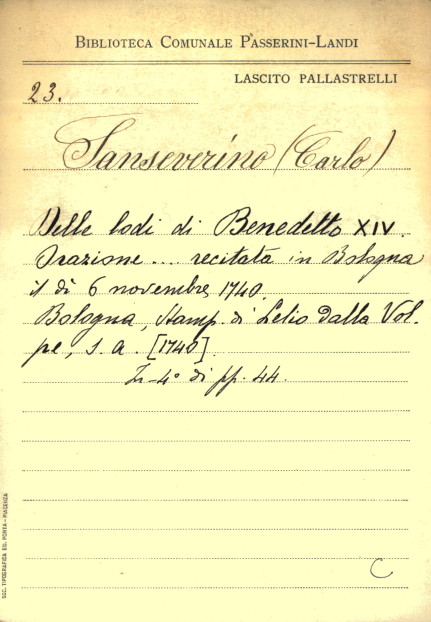 BIBLIOTECA COMUNALE PASSERINI-LANDI
LASCITO PALLASTRELLI
23.
Sanseverino (Carlo)
Delle lodi di Benedetto XIV.
Orazione ... recitata in Bologna
il dì 6 novembre 1740.
Bologna, Stamp. di Lelio dalla Vol-
pe, s. a. [1740].
In-4° di pp. 44.
C
SOC. TIPOGRAFICA ED. PORTA - PIACENZA